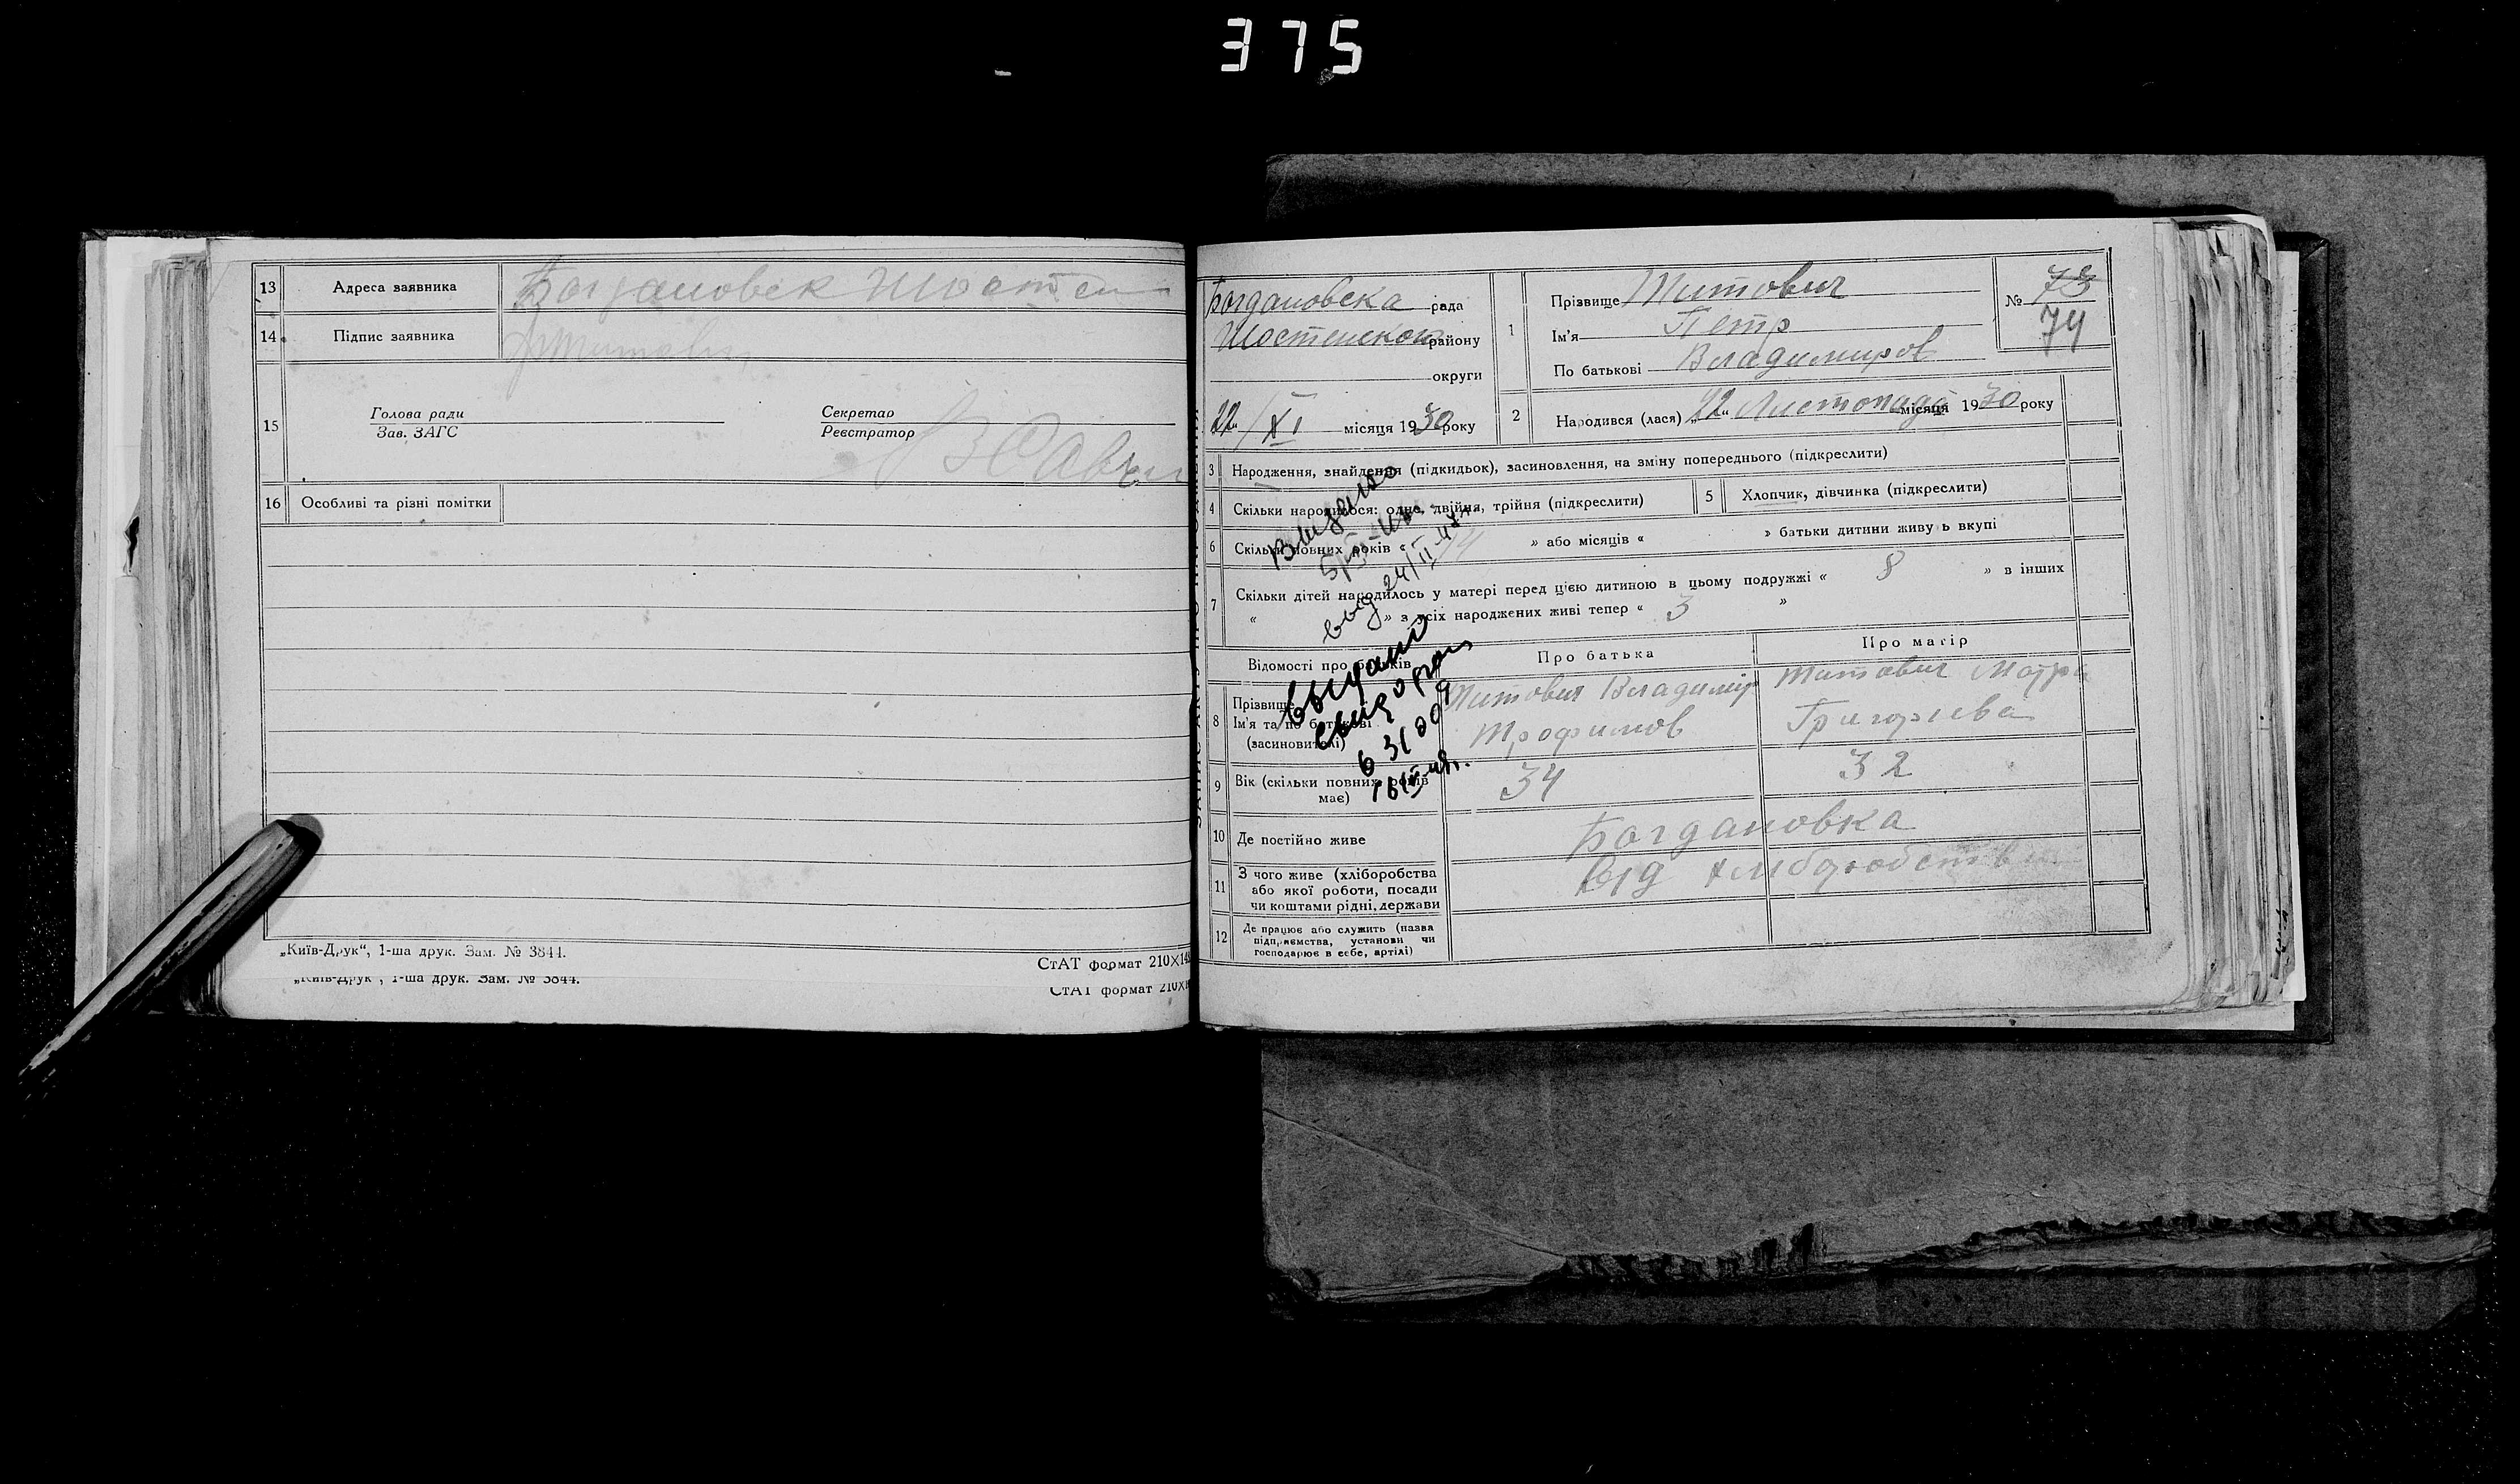 375
13 Адреса заявника Богдановск Шостен
14 Підпис заявника
15 Голова ради
Зав. ЗАГС
Секретар
Реєстратор
16 Особливі та різні помітки
„Київ-Друк“, 1-ша друк. Зам. № 3844.
СтАТ формат 210×148
„Київ-Друк“, 1-ша друк. Зам. № 3844.
СтАТ формат 210×1
Богдановска рада
Шостенской району
округи
22 / XI місяця 1930 року
1 Прізвище Титович
Ім'я Петр
По батькові Владимиров
№ 73
74
2 Народився (лася) „22“ Листопада місяця 1930 року
3 Народження, знайдення (підкидьок), засиновлення, на зміну попереднього (підкреслити)
4 Скільки народилося: одне, двійня, трійня (підкреслити)
5 Хлопчик, дівчинка (підкреслити)
6 Скільки повних років « 14 » або місяців « » батьки дитини живу ь вкупі
7 Скільки дітей народилось у матері перед цією дитиною в цьому подружжі « 8 » в інших
« » з усіх народжених живі тепер « 3 »
Відомості про батьків
Про батька
Про матір
8 Прізвище
Ім'я та по батькові
(засиновителі)
Титович Владимір
Трофимов
Титович Мотра
Григорієва
9 Вік (скільки повних років
має)
34
32
10 Де постійно живе
Богдановка
11 З чого живе (хліборобства
або якої роботи, посади
чи коштами рідні, держави
від хліборобства
12 Де працює або служить (назва
підприємства, установи чи
господарює в себе, артілі)
від 24/II-47
выдано